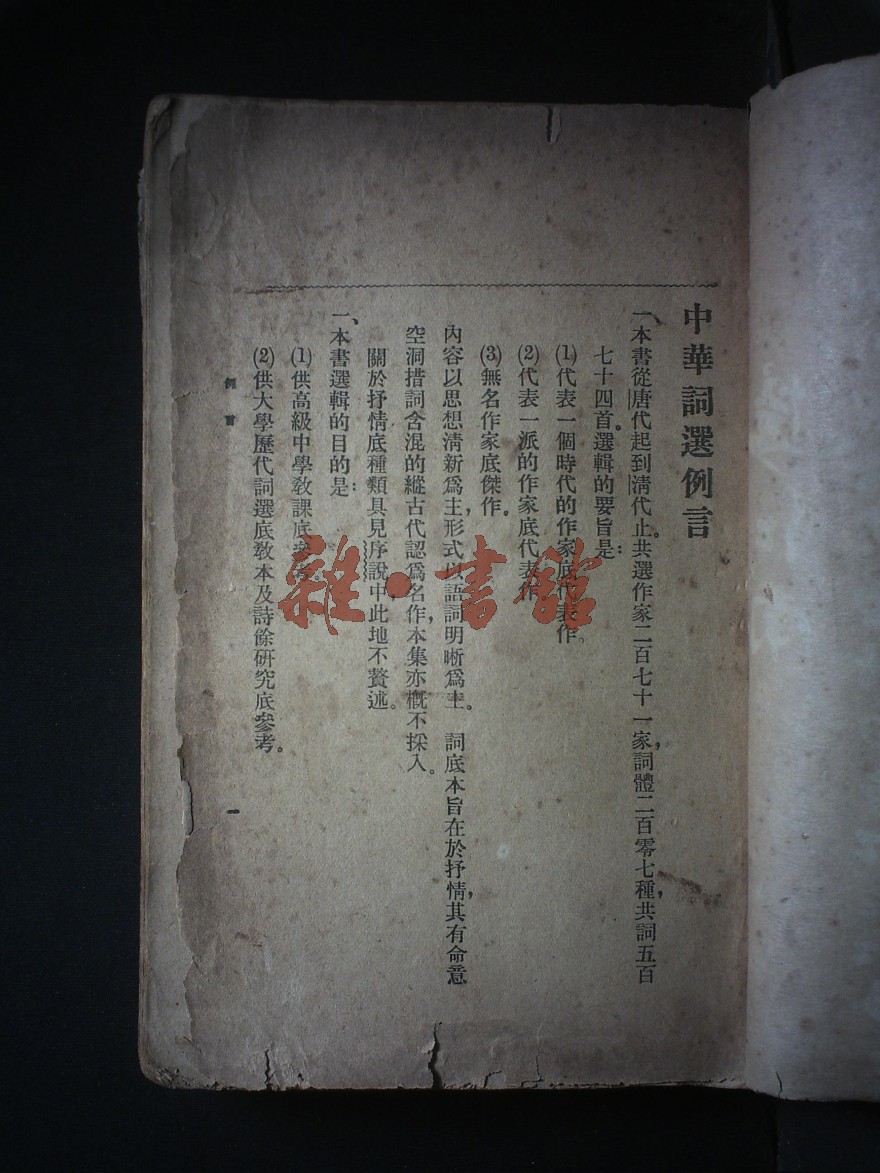 中華詞選例言
一、本書從唐代起到清代止。共選作家二百七十一家，詞體二百零七種，共詞五百
七十四首。選輯的要旨是：
(1)代表一個時代的作家底代表作。
(2)代表一派的作家底代表作。
(3)無名作家底傑作。
內容以思想清新爲主，形式以語詞明晰爲主。詞底本旨在於抒情，其有命意
空洞措詞含混的縱古代認爲名作，本集亦槪不採入。
關於抒情底種類具見序說中此地不贅述。
一、本書選輯的目的是：
(1)供高級中學敎課底參考。
(2)供大學歷代詞選底敎本及詩餘硏究底參考。
例言
一
雜·書館